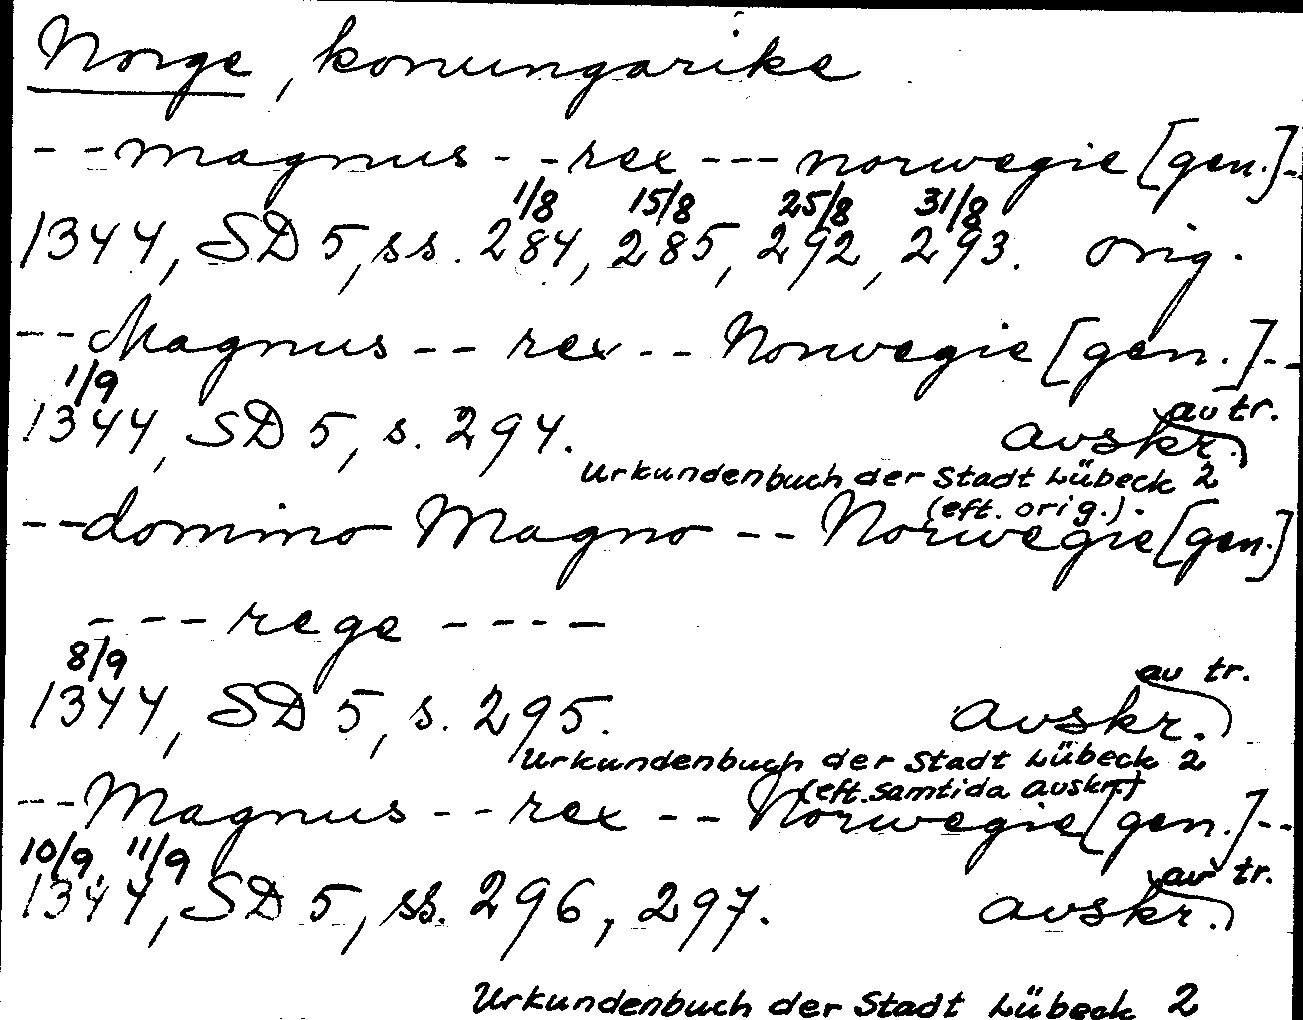 Norge, konungarike
- - magnus - - rex - - - norwegie [gen.] - -
1/8 15/8 25/8 31/8
1344, SD 5, ss. 284, 285, 292, 293. orig.
- - Magnus - - rex - - Norwegie [gen.] - -
1/9 av tr.
1344, SD 5, s. 294. avskr.
Urkundenbuch der Stadt Lübeck 2
(eft. orig.).
- - domino Magno - - Norwegie [gen.]
- - - rege - - - -
8/9 av tr.
1344, SD 5, s. 295. avskr.
Urkundenbuch der Stadt Lübeck 2
(eft. samtida avskr.)
- - Magnus - - rex - - Norwegie [gen.] - -
10/9, 11/9 av tr.
1344, SD 5, ss. 296, 297. avskr.
Urkundenbuch der Stadt Lübeck 2